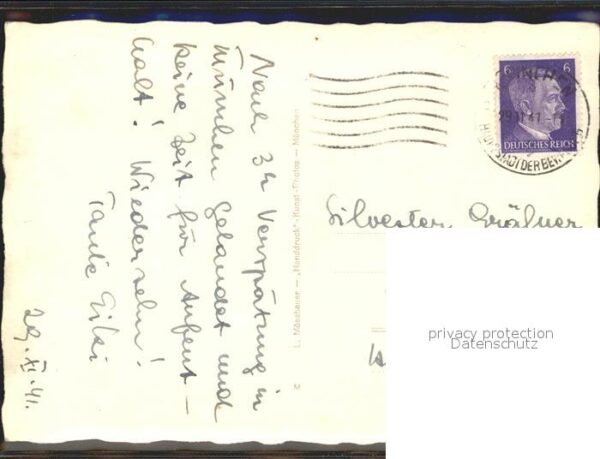 Nach 3 h Verspätung in
München gelandet und
keine Zeit für Aufent-
halt! Wiedersehn!
Tante
29. XI. 41.
L. Mösshauer — "Handdruck"-Kunst-Photos — München
6 6
DEUTSCHES REICH
MÜNCHEN
41
HAUPTSTADT DER BEWEGUNG
Silvester Gräfner
privacy protection
Datenschutz